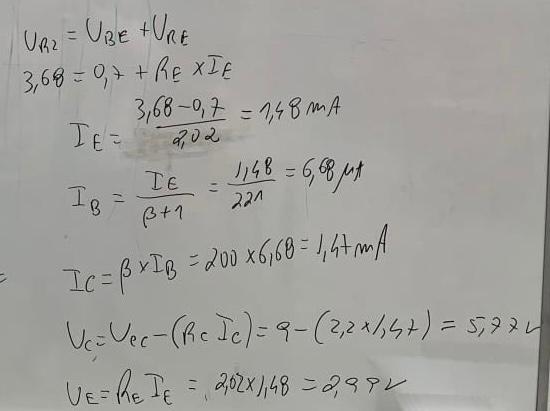 U_R2 = U_BE + U_RE
3,68 = 0,7 + R_E × I_E
I_E = (3,68 - 0,7) / 2,02 = 1,48 mA
I_B = I_E / (β+1) = 1,48 / 221 = 6,68 μA
I_C = β × I_B = 200 × 6,68 = 1,47 mA
U_C = U_CC - (R_C I_C) = 9 - (2,2 × 1,47) = 5,77 V
U_E = R_E I_E = 2,02 × 1,48 = 2,99 V